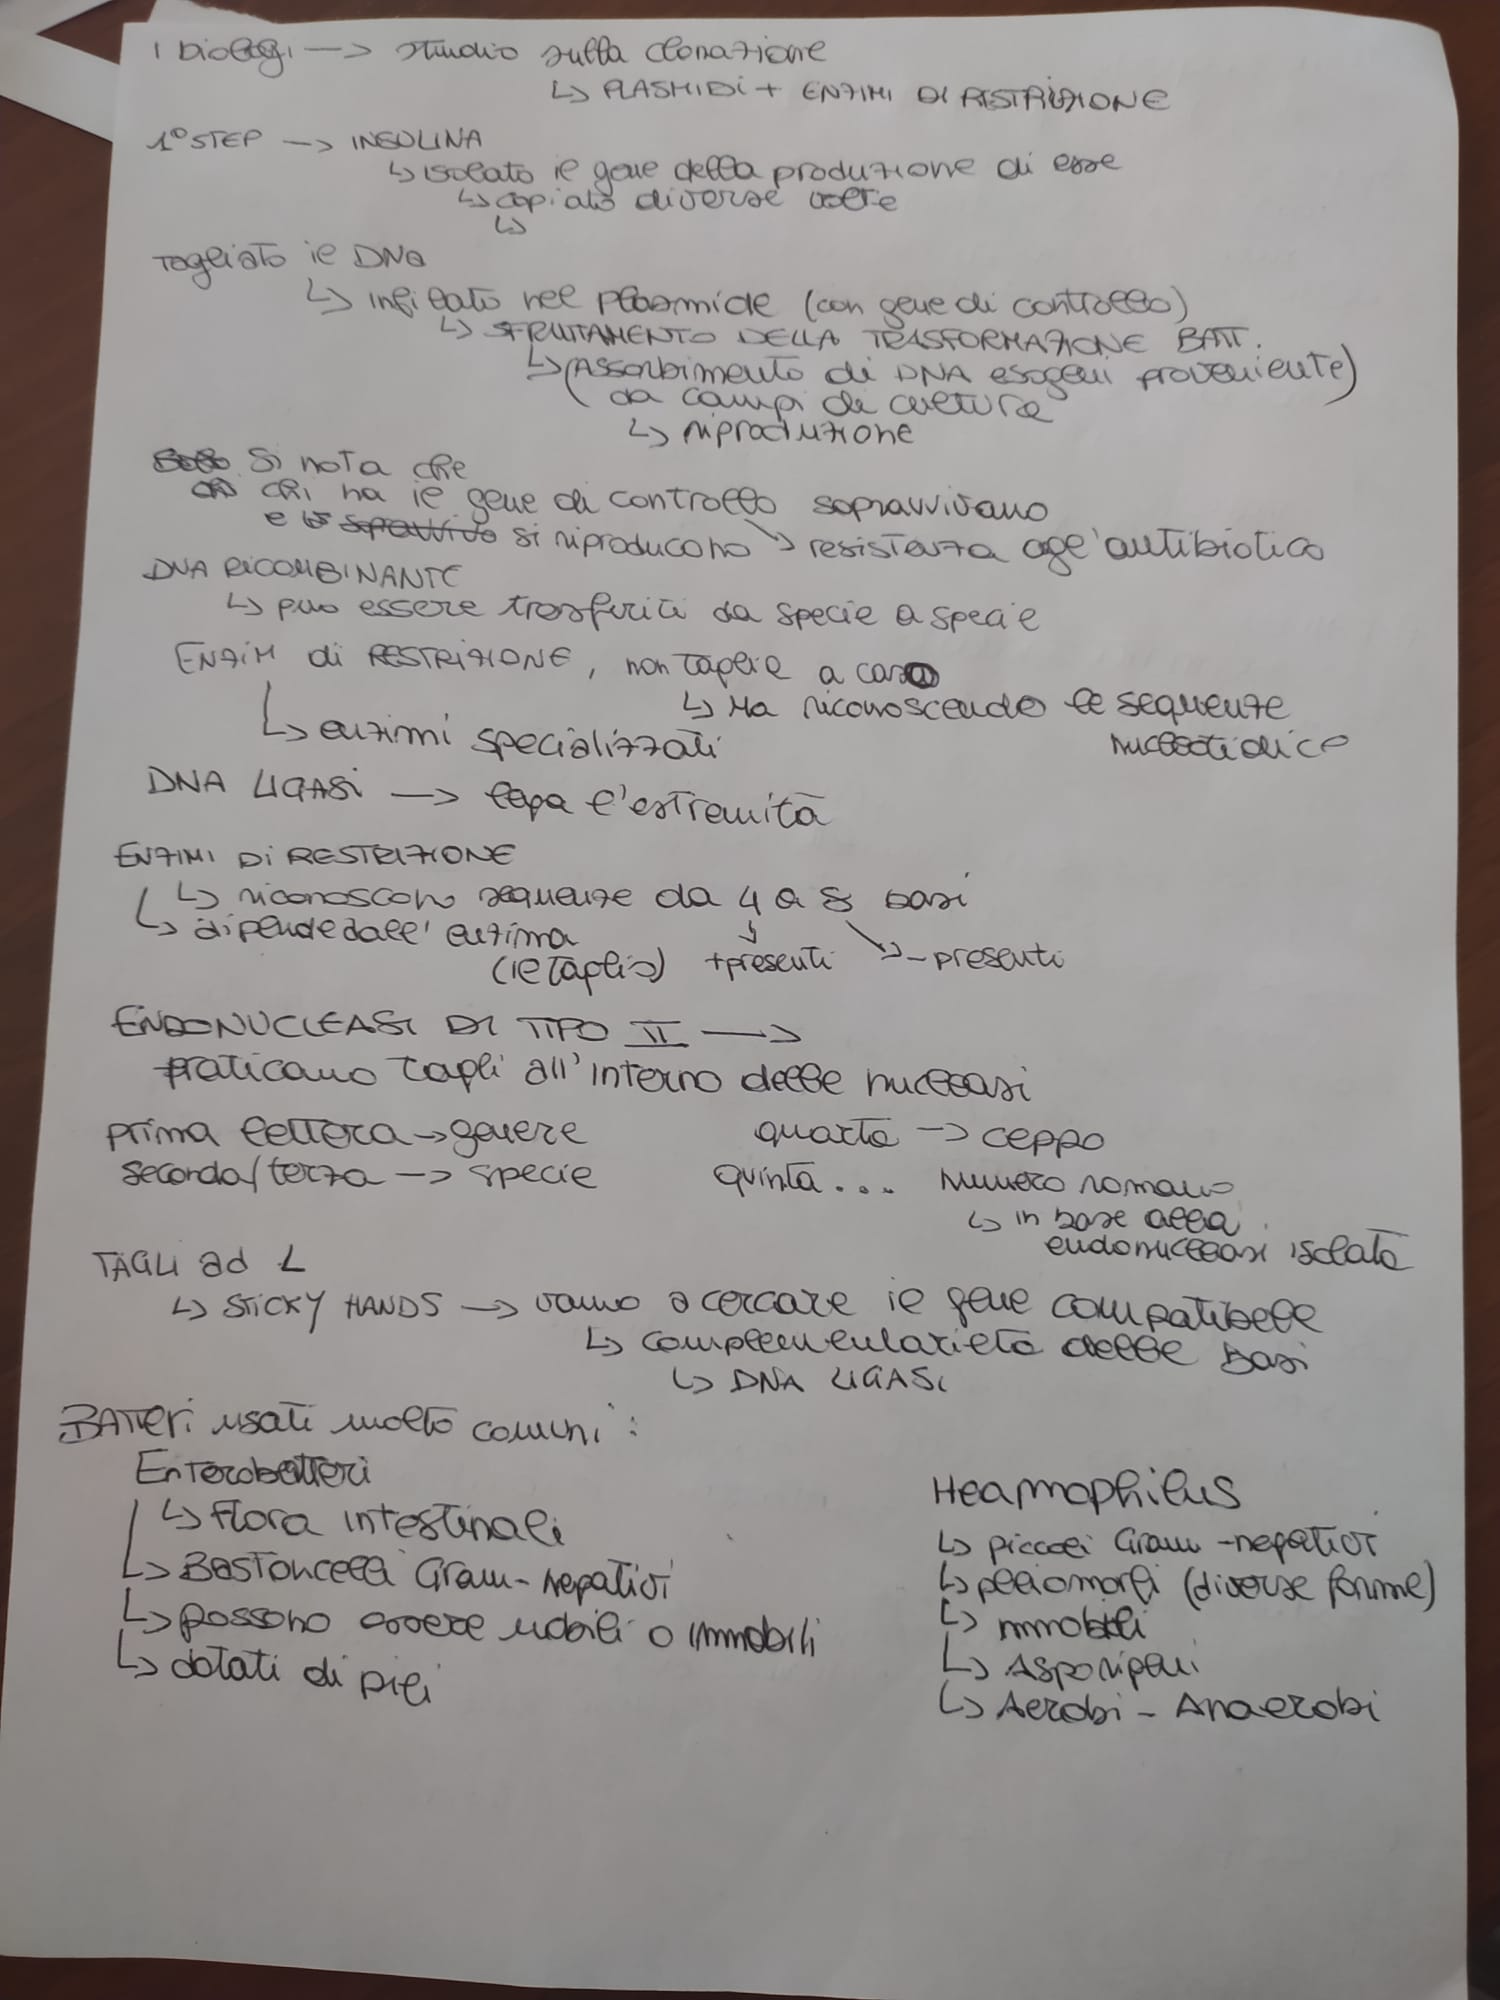 I biologi → studio sulla clonazione
↳ PLASMIDI + ENZIMI DI RESTRIZIONE
1° STEP → INSULINA
↳ isolato il gene della produzione di esse
↳ copiato diverse volte
↳
Tagliato il DNA
↳ infilato nel plasmide (con gene di controllo)
↳ SFRUTTAMENTO DELLA TRASFORMAZIONE BATT.
↳ (Assorbimento di DNA esogeni proveniente)
da campi di culture
↳ riproduzione
Si nota che
chi ha il gene di controllo sopravvivano
e si riproducono ↘ resistenza agl'antibiotico
DNA RICOMBINANTE
↳ può essere trasferiti da specie a specie
ENZIM di RESTRIZIONE, non taglie a caso
↳ Ma riconoscendo le sequenze
↳ enzimi specializzati nucleotidice
DNA LIGASI → lega l'estremità
ENZIMI DI RESTRIZIONE
↳ riconoscono sequenze da 4 a 8 basi
↳ dipende dall'enzima
(il taglio) + presenti ↘ - presenti
ENDONUCLEASI DI TIPO II →
praticano tagli all'interno delle nucleasi
prima lettera → genere quarta → ceppo
seconda/terza → specie quinta... numero romano
↳ in base alla
endonucleasi isolata
TAGLI ad L
↳ STICKY HANDS → vanno a cercare il gene compatibile
↳ complementarietà delle basi
↳ DNA LIGASI
BATTERI usati molto comuni:
Enterobatteri
Heamophilus
↳ Flora intestinali
↳ piccoli Gram-negativi
↳ Bastoncelli Gram-negativi
↳ pleiomorfi (diverse forme)
↳ possono essere mobili o immobili
↳ immobili
↳ dotati di pili
↳ Asporigeni
↳ Aerobi - Anaerobi